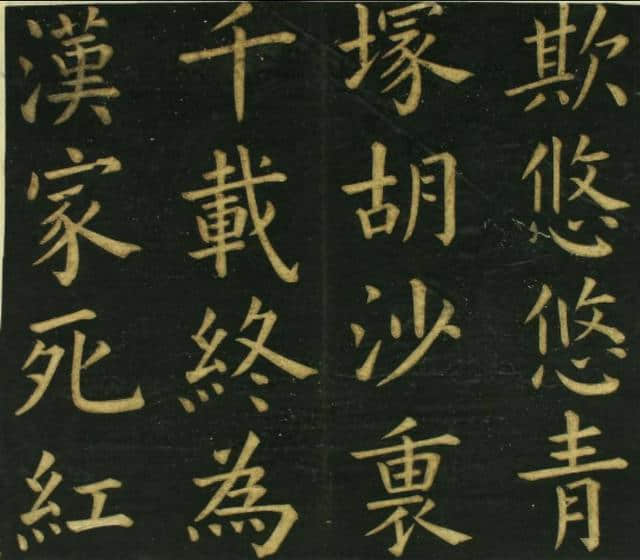 欺悠悠青
塚胡沙裏
千載終為
漢家死紅